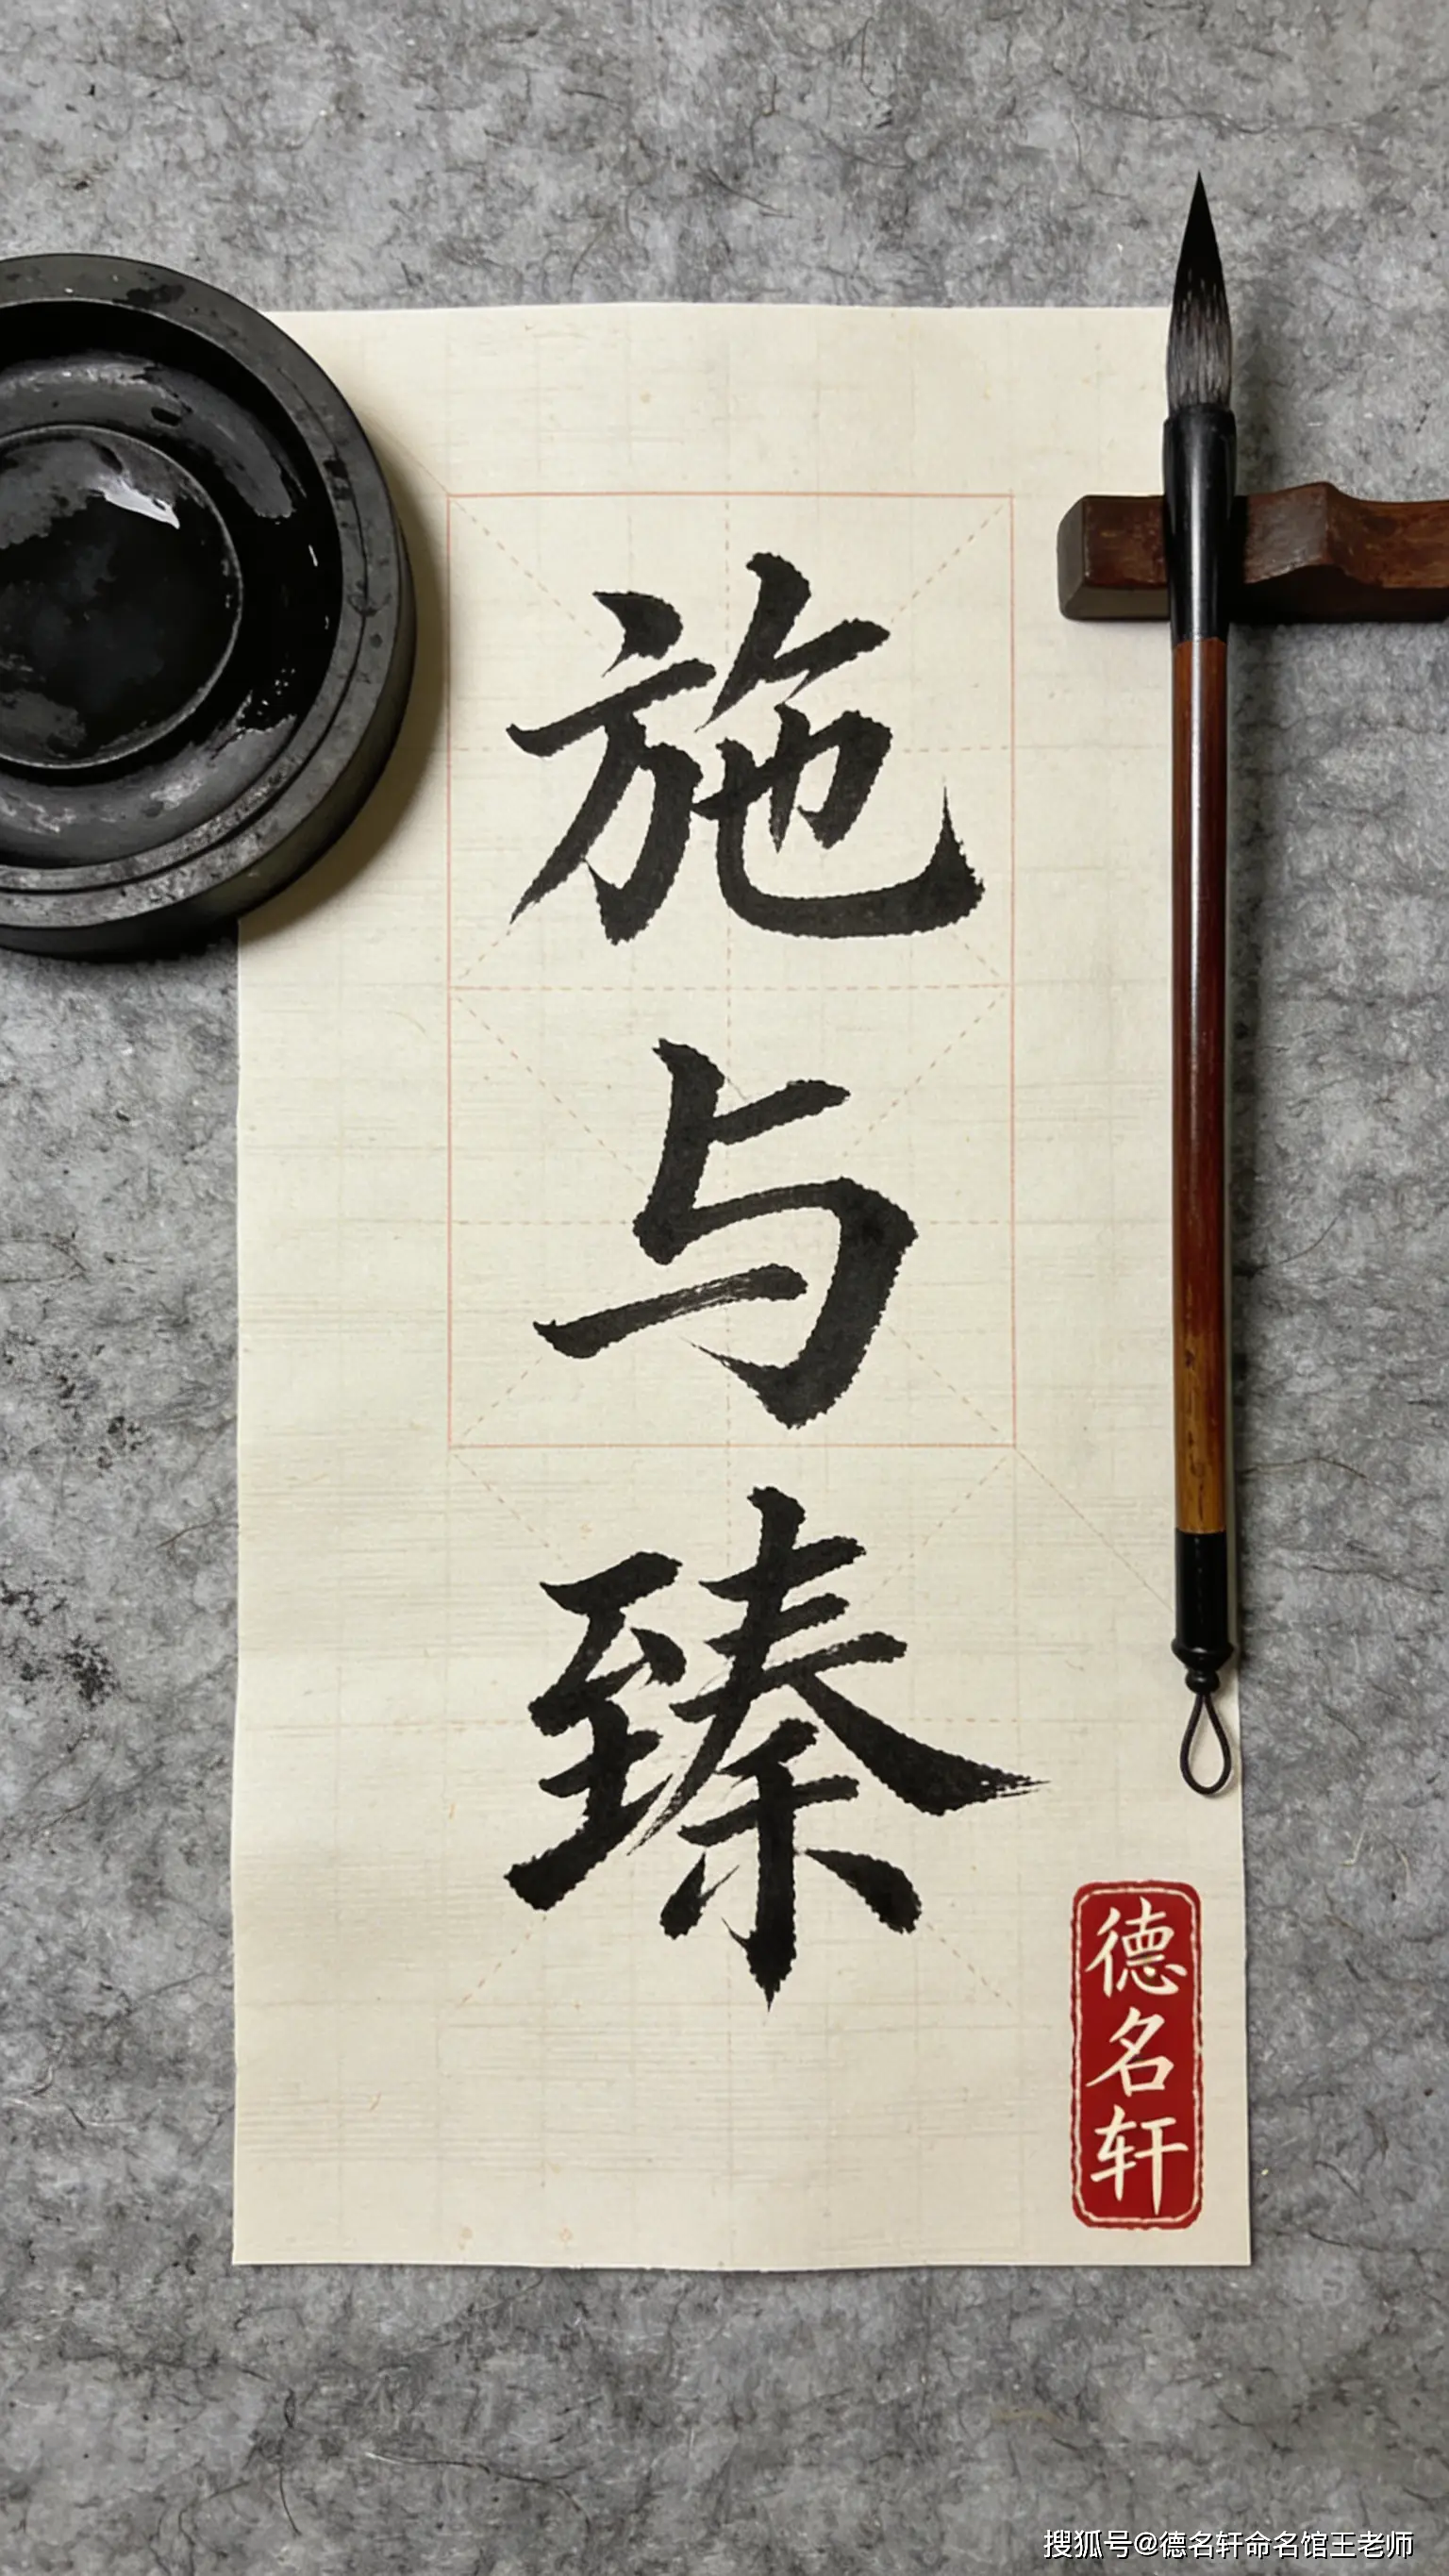 施与臻
德名轩
搜狐号@德名轩命名馆王老师